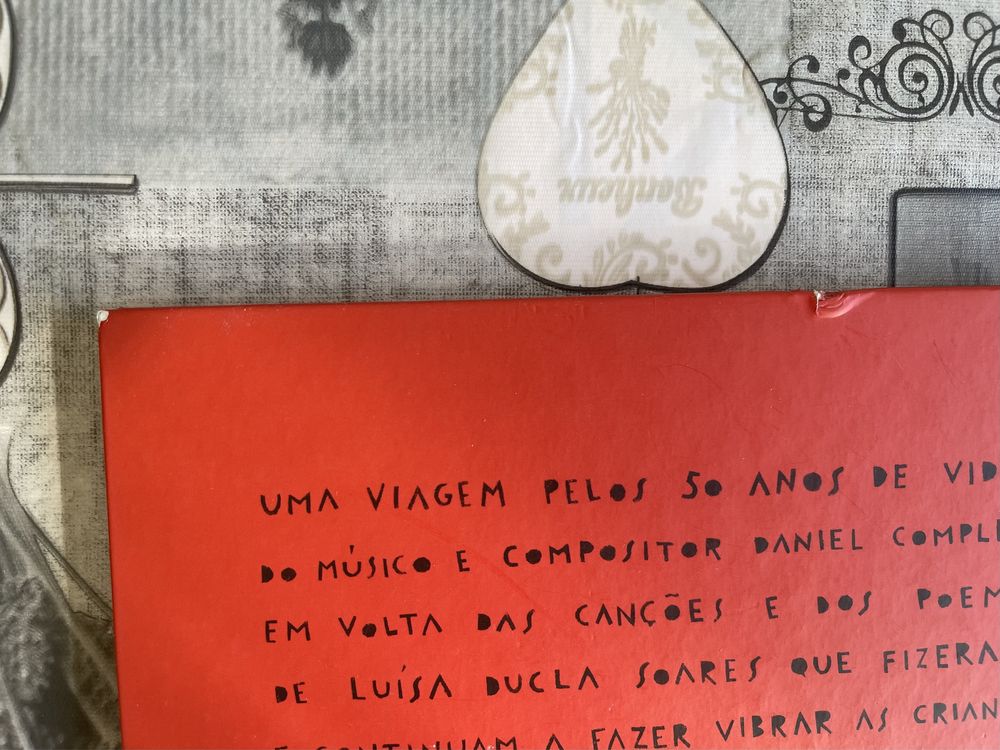 Bonheur
UMA VIAGEM PELOS 50 ANOS DE VID
DO MÚSICO E COMPOSITOR DANIEL COMPLE
EM VOLTA DAS CANÇÕES E DOS POEM
DE LUÍSA DUCLA SOARES QUE FIZERA
E CONTINUAM A FAZER VIBRAR AS CRIAN